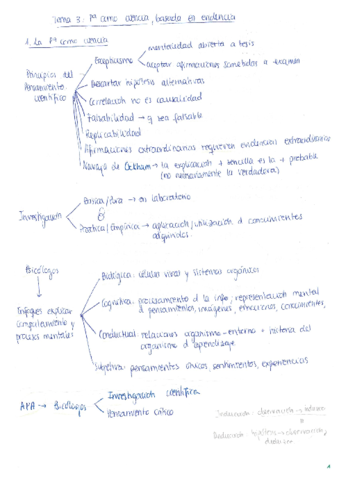 Tema 3: Ψª como ciencia, basado en evidencia
1. La Ψª como ciencia
Escepticismo
mentalidad abierta a tesis
aceptar afirmaciones sometidas a examen
Principios del
pensamiento
científico
Descartar hipótesis alternativas
Correlación no es causalidad
Falsabilidad → q sea falsable
Replicabilidad
Afirmaciones extraordinarias requieren evidencias extraordinarias
Navaja de Ockham → la explicación + sencilla es la + probable
(no necesariamente la verdadera)
Investigación
Básica/pura → en laboratorio
Práctica/Empírica → aplicación/utilización d conocimientos
adquiridos.
Psicólogos
Enfoques explicar
comportamiento y
procesos mentales
Biológica: células vivas y sistemas orgánicos
Cognitiva: procesamiento d la info, representación mental
d pensamientos, imágenes, emociones, conocimientos,
Conductual: relaciones organismo-entorno + historia del
organismo d aprendizaje
Subjetiva: pensamientos únicos, sentimientos, experiencias
APA → Psicólogos
Investigación científica
Pensamiento crítico
Inducción: observación →
Deducción: hipótesis → observación,